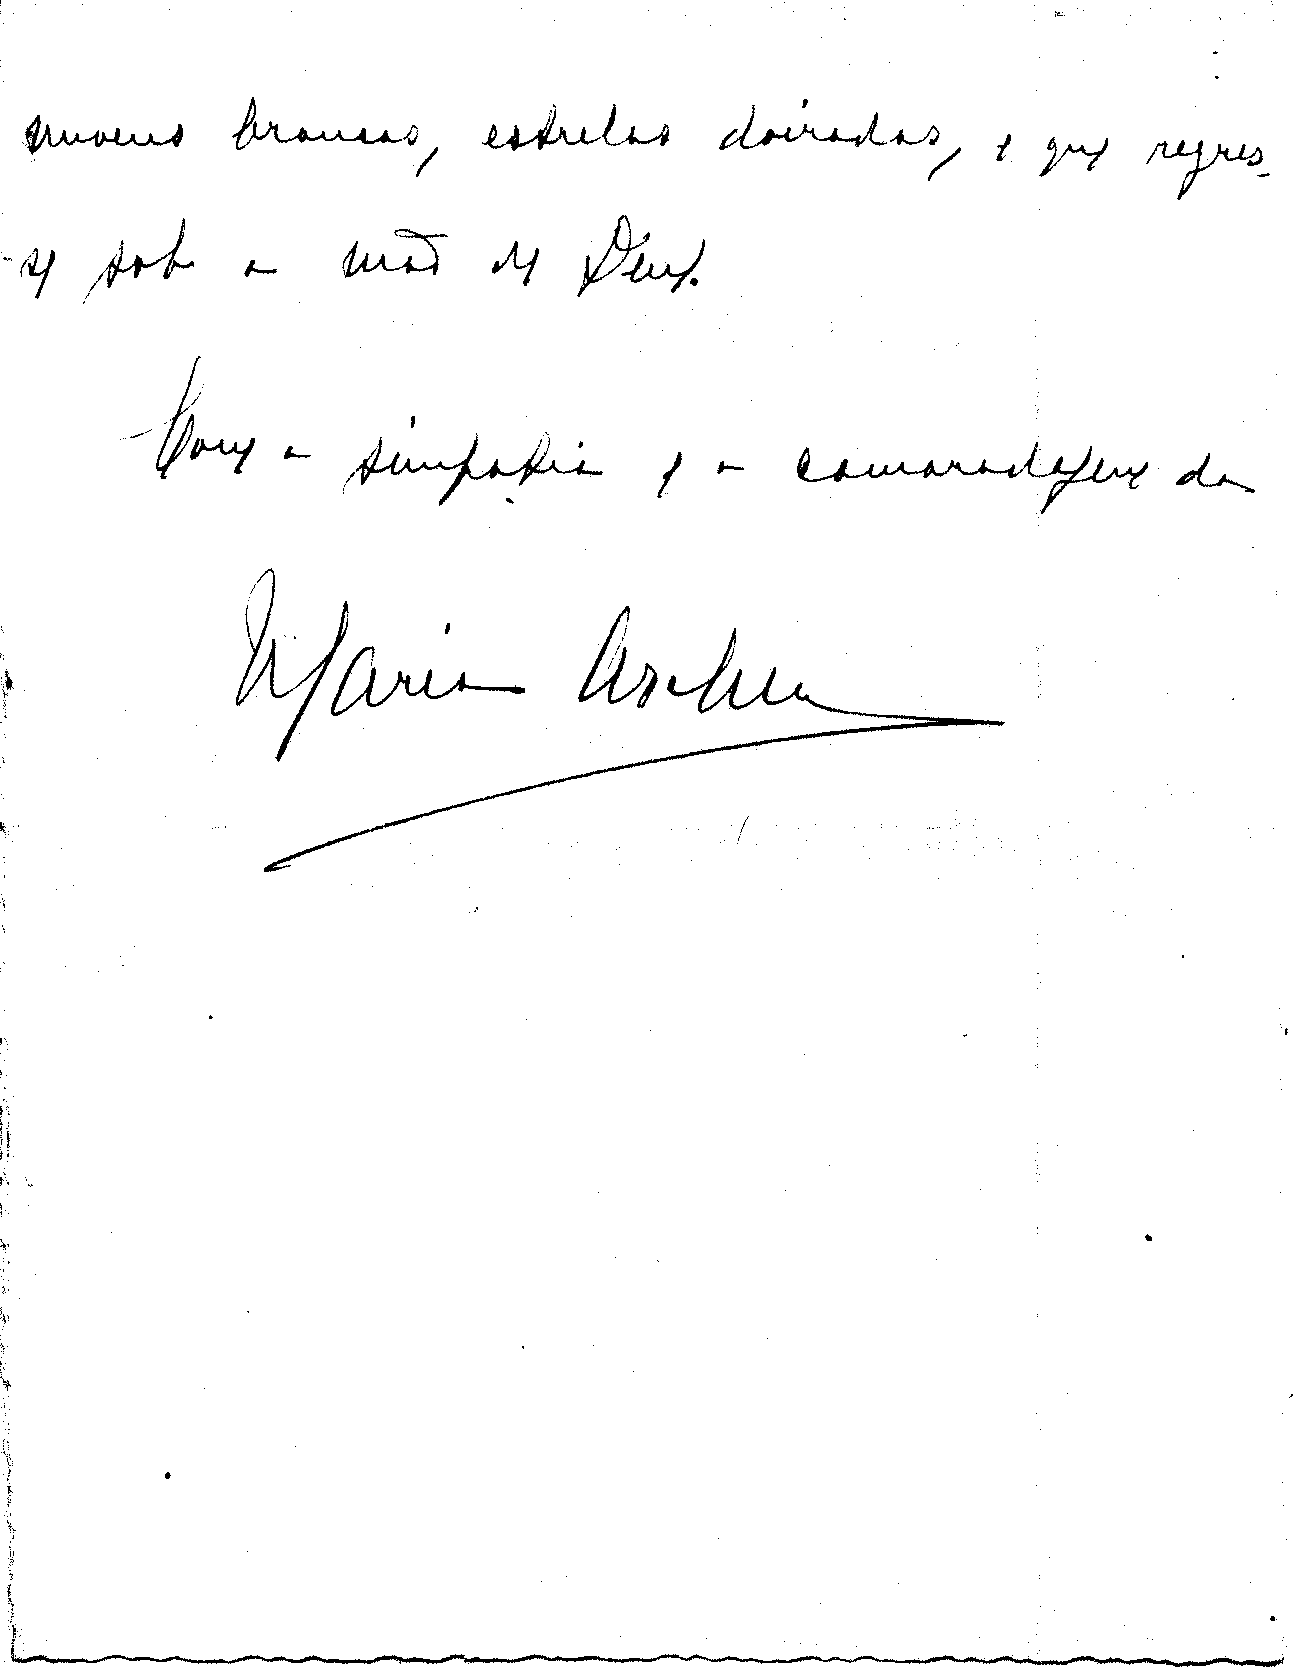 nuvens brancas, estrelas doiradas, e que regres-
se sob a mão de Deus.
Com a simpatia e a camaradagem da
Maria Archer